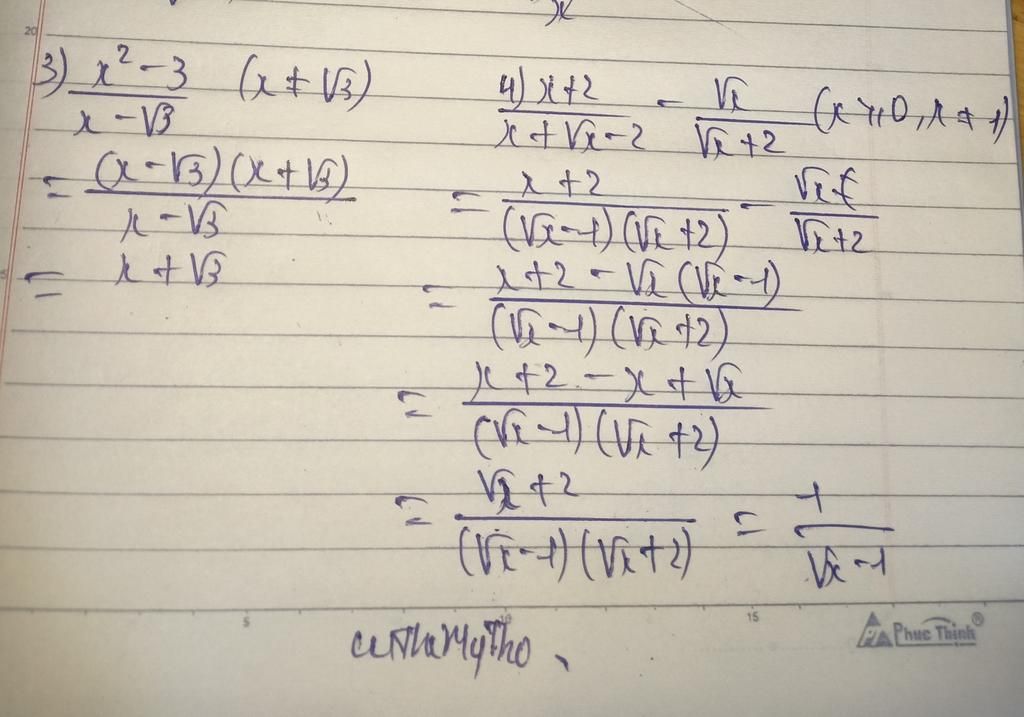 x
20
3) (x² - 3)/(x - √3) (x ≠ √3)
= ((x - √3)(x + √3))/(x - √3)
= x + √3
4) (x + 2)/(x + √x - 2) - √x/(√x + 2) (x ≥ 0, x ≠ 1)
= (x + 2)/((√x - 1)(√x + 2)) - √x/(√x + 2)
= (x + 2 - √x(√x - 1))/((√x - 1)(√x + 2))
= (x + 2 - x + √x)/((√x - 1)(√x + 2))
= (√x + 2)/((√x - 1)(√x + 2)) = 1/(√x - 1)
5 10 15
Phuc Thinh®